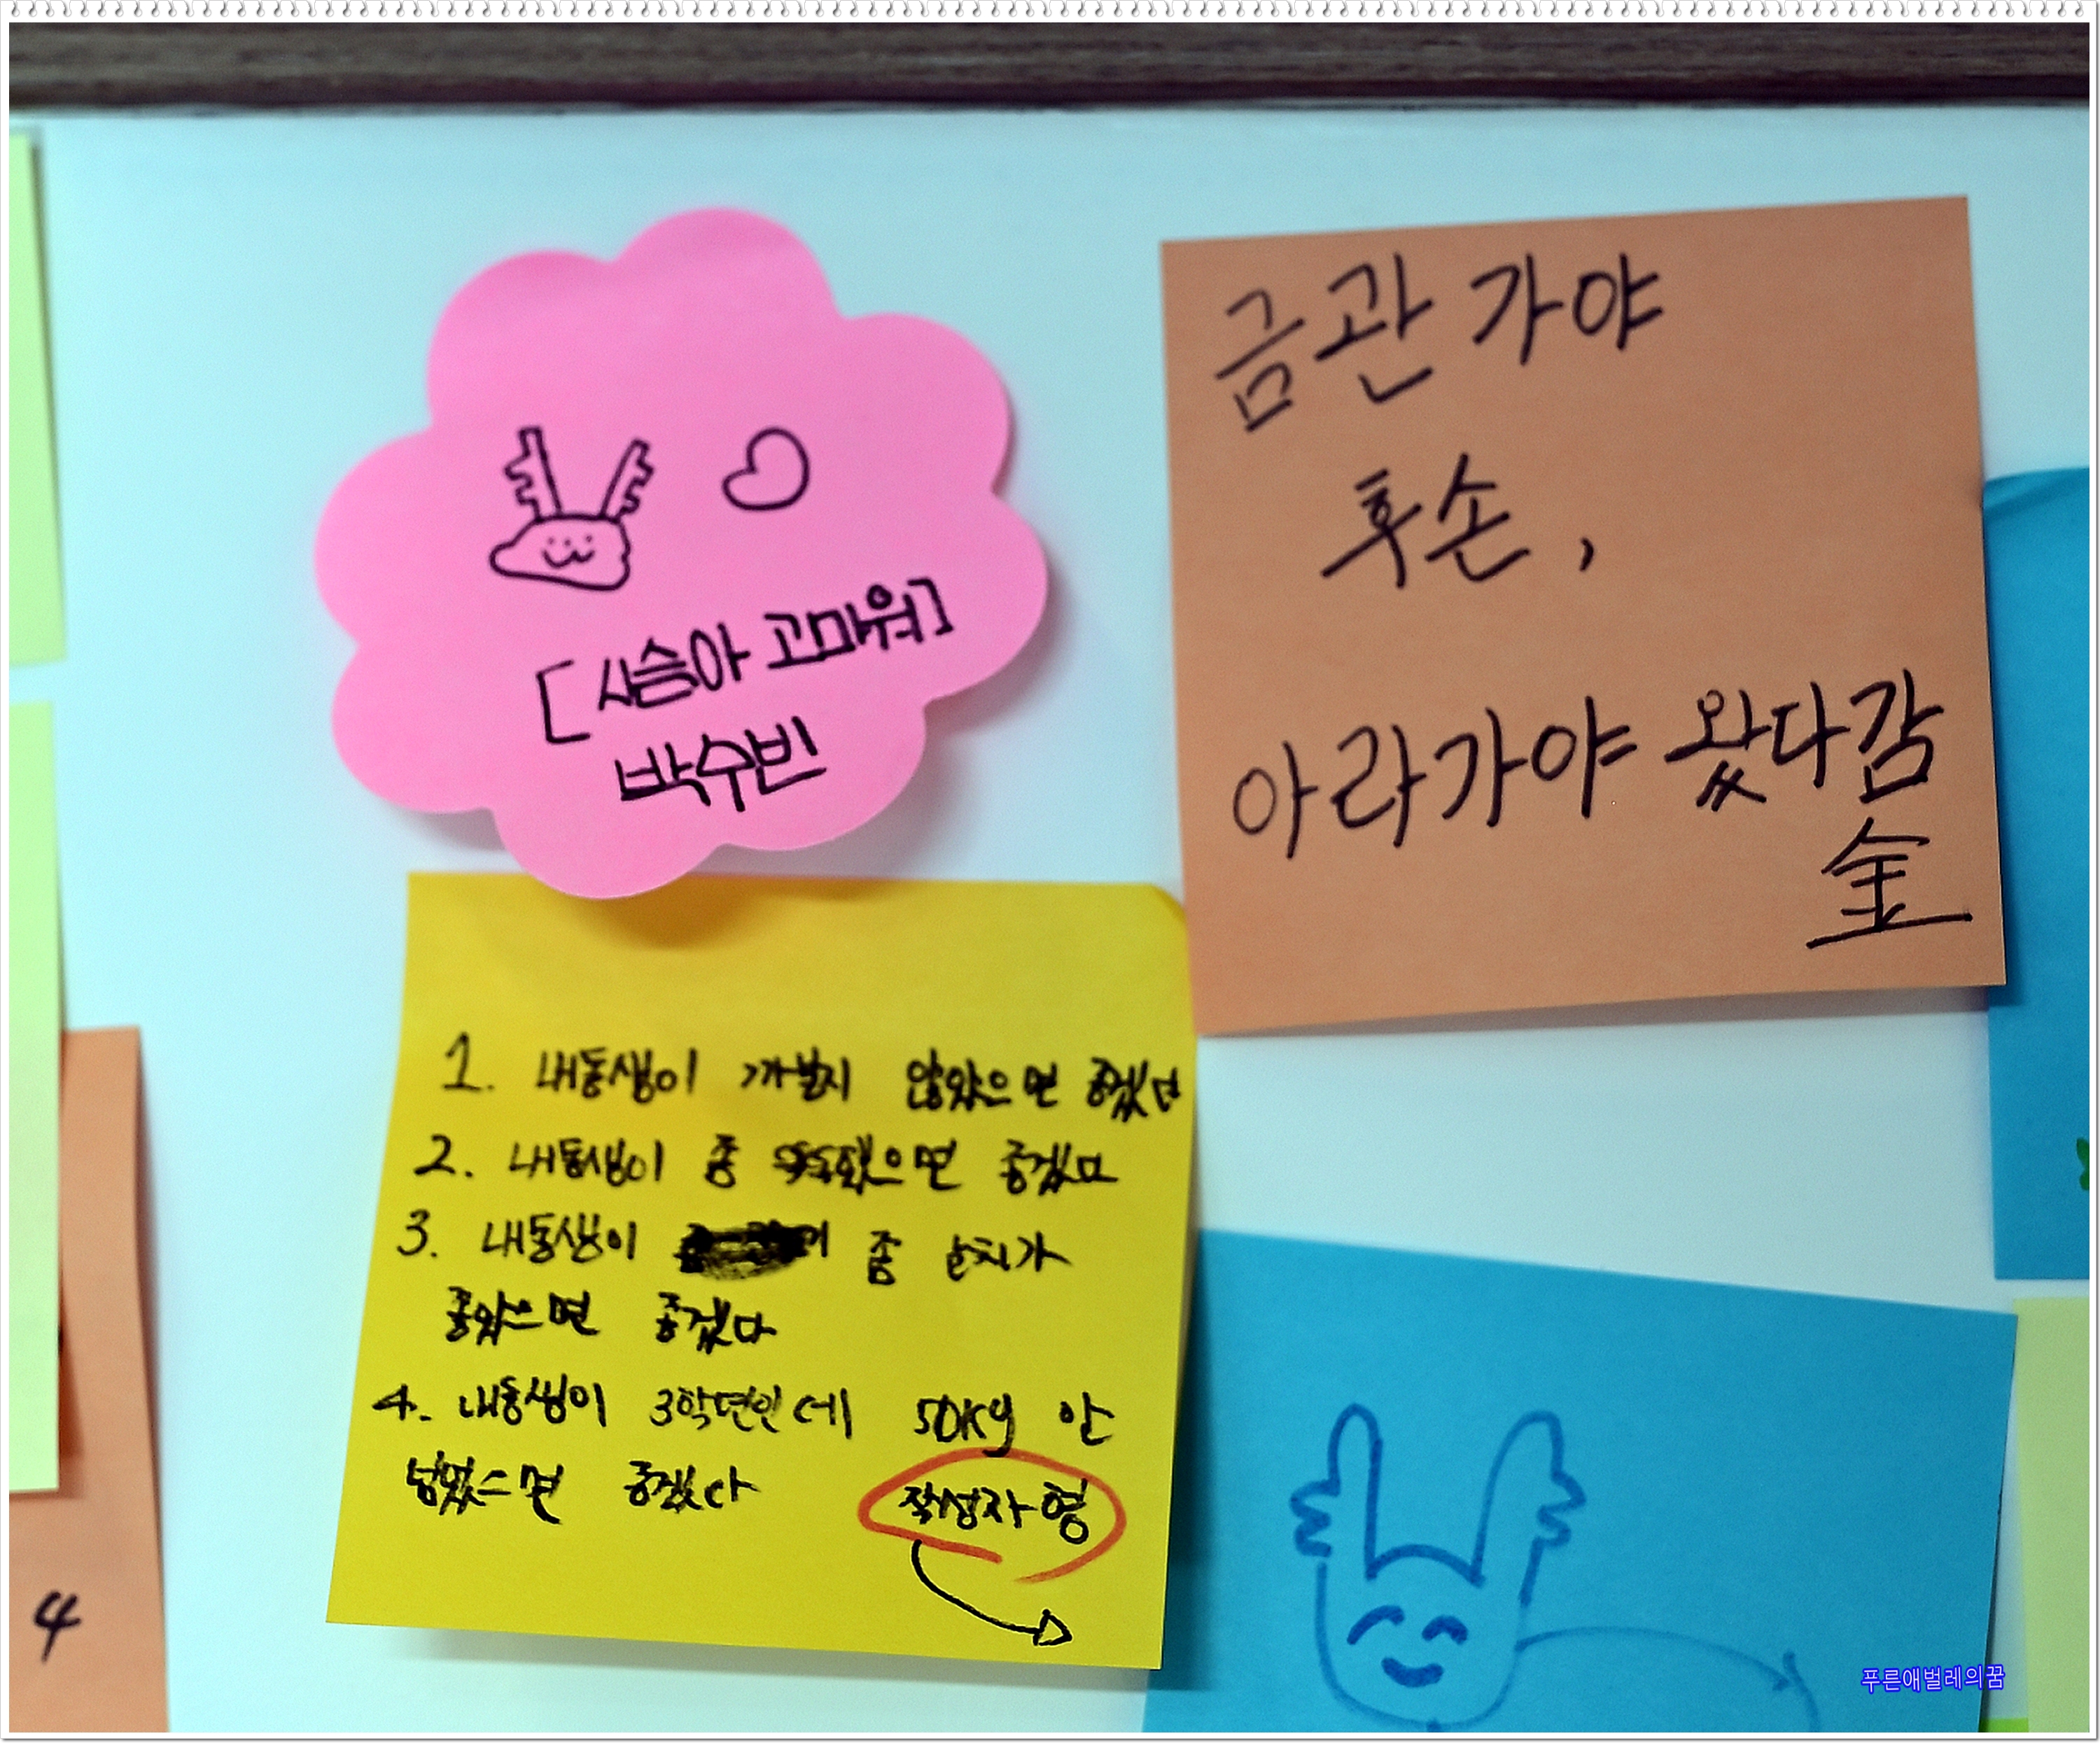 [사슴아 고마워]
박수빈
금관가야
후손,
아라가야 왔다감
金
1. 내동생이 까불지 않았으면 좋겠다
2. 내동생이 좀 똑똑했으면 좋겠다
3. 내동생이 좀 눈치가
좋았으면 좋겠다
4. 내동생이 3학년인데 50kg 안
넘었으면 좋겠다
작성자형
4
푸른애벌레의꿈